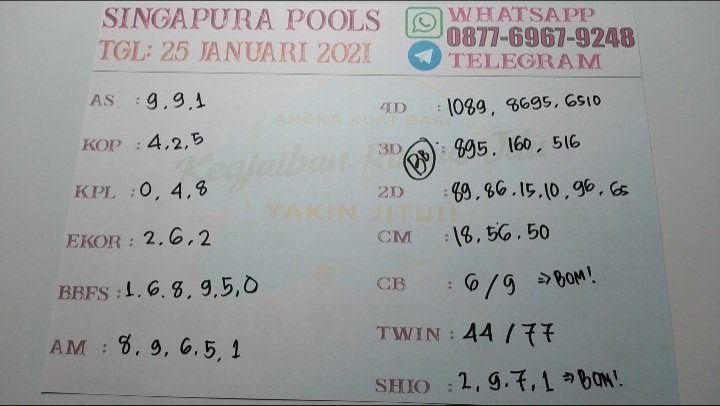 SINGAPURA POOLS
TGL: 25 JANUARI 2021
WHATSAPP
0877-6967-9248
TELEGRAM
AS : 9,9,1
KOP : 4,2,5
KPL : 0,4,8
EKOR : 2.6.2
BBFS : 1.6.8,9,5,0
AM : 8,9,6,5,1
4D : 1089, 8695, 6510
3D : 895, 160, 516
BB
2D : 89,86.15,10,96,65
CM : 18,56.50
CB : 6/9 ⇒ BOM!
TWIN : 44/77
SHIO : 2,9.7,1 ⇒ BOM!
ANGKA KUAT DARI
Keajaiban
YAKIN JITU!!